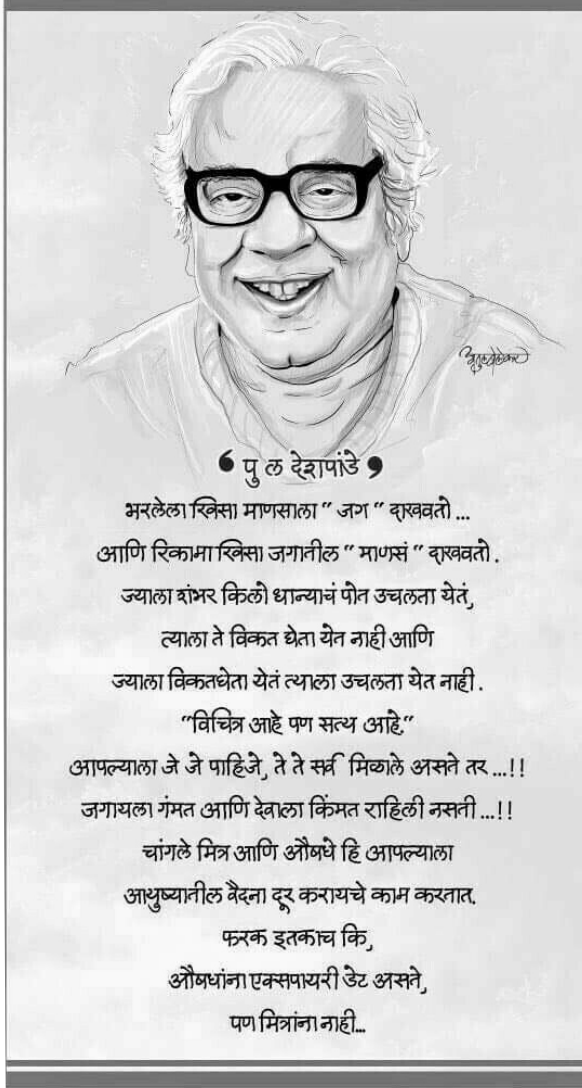 ❛ पु ल देशपांडे ❜
भरलेला खिसा माणसाला " जग " दाखवतो ...
आणि रिकामा खिसा जगातील " माणसं " दाखवतो .
ज्याला शंभर किलो धान्याचं पोत उचलता येतं,
त्याला ते विकत घेता येत नाही आणि
ज्याला विकतघेता येतं त्याला उचलता येत नाही .
"विचित्र आहे पण सत्य आहे."
आपल्याला जे जे पाहिजे, ते ते सर्व मिळाले असते तर ...!!
जगायला गंमत आणि देवाला किंमत राहिली नसती ...!!
चांगले मित्र आणि औषधे हि आपल्याला
आयुष्यातील वेदना दूर करायचे काम करतात.
फरक इतकाच कि,
औषधांना एक्सपायरी डेट असते,
पण मित्रांना नाही...